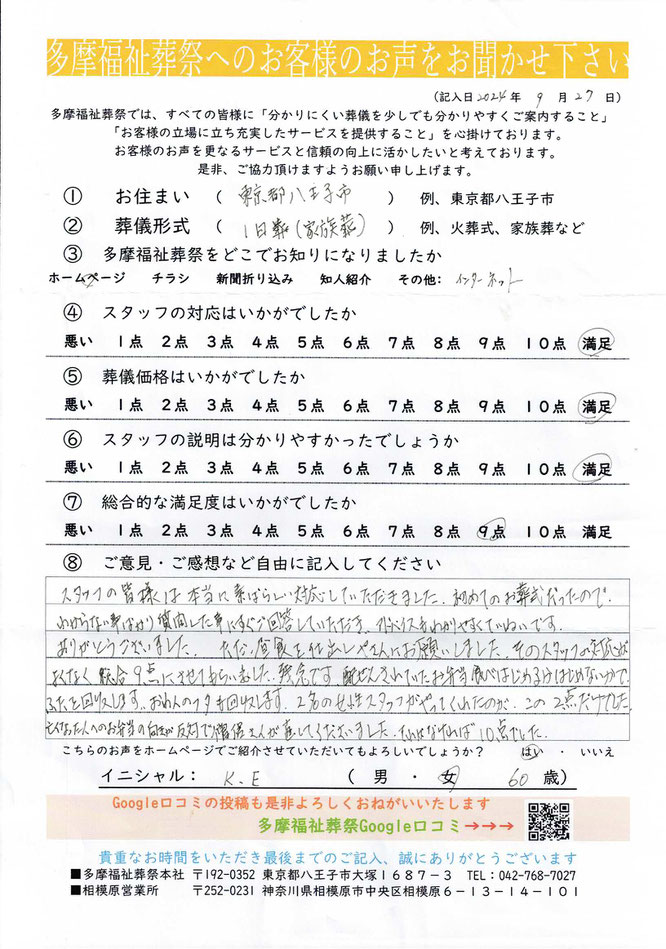 多摩福祉葬祭へのお客様のお声をお聞かせ下さい
(記入日2024年 9 月 27 日)
多摩福祉葬祭では、すべての皆様に「分かりにくい葬儀を少しでも分かりやすくご案内すること」
「お客様の立場に立ち充実したサービスを提供すること」を心掛けております。
お客様のお声を更なるサービスと信頼の向上に活かしたいと考えております。
是非、ご協力頂けますようお願い申し上げます。
① お住まい ( 東京都八王子市 ) 例、東京都八王子市
② 葬儀形式 ( 1日葬(家族葬) ) 例、火葬式、家族葬など
③ 多摩福祉葬祭をどこでお知りになりましたか
ホームページ チラシ 新聞折り込み 知人紹介 その他: インターネット
④ スタッフの対応はいかがでしたか
悪い 1点 2点 3点 4点 5点 6点 7点 8点 9点 10点 満足
⑤ 葬儀価格はいかがでしたか
悪い 1点 2点 3点 4点 5点 6点 7点 8点 9点 10点 満足
⑥ スタッフの説明は分かりやすかったでしょうか
悪い 1点 2点 3点 4点 5点 6点 7点 8点 9点 10点 満足
⑦ 総合的な満足度はいかがでしたか
悪い 1点 2点 3点 4点 5点 6点 7点 8点 9点 10点 満足
⑧ ご意見・ご感想など自由に記入してください
スタッフの皆様は本当に素ばらしい対応していただきました。初めてのお葬式だったので、
わからない事ばかり質問した事にすぐご回答していただき、アドバイスもわかりやすくていねいです。
ありがとうございました。ただ、昼食を仕出しやさんにお願いしました。そのスタッフの対応が
よくなく総合9点にさせてもらいました。残念です。配ぜんされていたお弁当食べはじめるかはじめないかで
ふたを回収します。おわんのフタも回収します。2名の女性スタッフがやってくれたのが、この2点だけでした。
亡くなった人へのお弁当の向きが反対で僧侶さんが直してくださいました。それがなければ10点でした。
こちらのお声をホームページでご紹介させていただいてもよろしいでしょうか? はい ・ いいえ
イニシャル: K.E ( 男 ・ 女 60 歳)
Google口コミの投稿も是非よろしくおねがいいたします
多摩福祉葬祭Google口コミ→→→
貴重なお時間をいただき最後までのご記入、誠にありがとうございます
■多摩福祉葬祭本社 〒192-0352 東京都八王子市大塚1687-3 TEL:042-768-7027
■相模原営業所 〒252-0231 神奈川県相模原市中央区相模原6-13-14-101